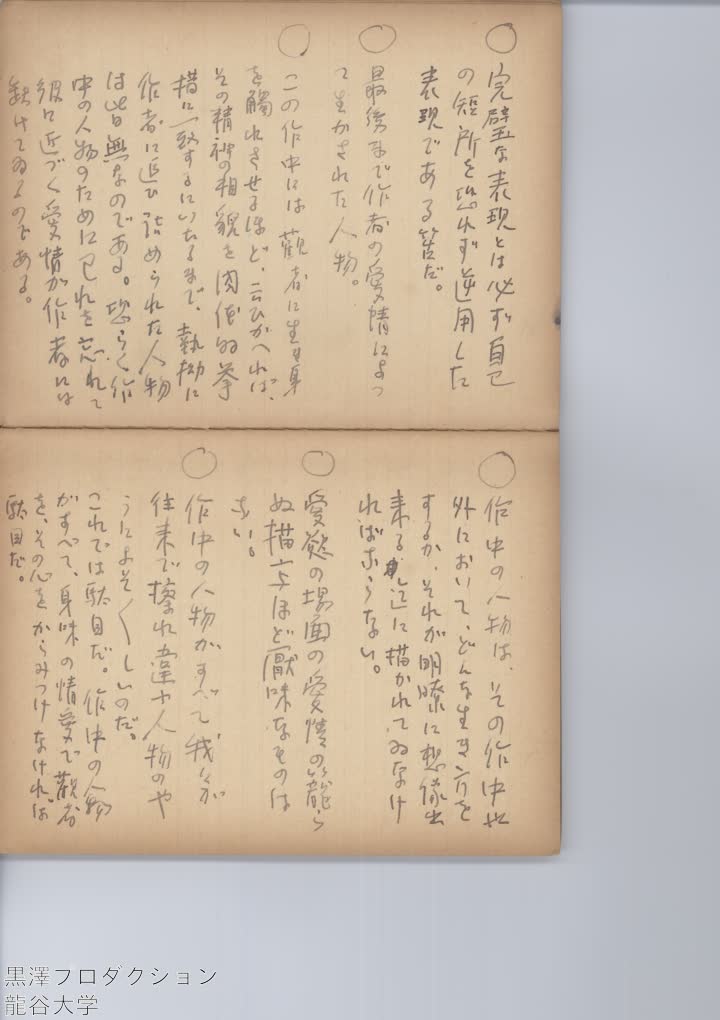 ○ 完璧な表現とは必ず自己
の短所を恐れず逆用した
表現である筈だ。
○ 最後まで作者の愛情によつ
て生かされた人物。
○ この作中には観者に生身
を觸れさせるほど、云ひかへれば、
その精神の相貌を肉体的挙
措に一致するにいたるまで、執拗に
作者に追ひ詰められた人物
は皆無なのである。恐らく作
中の人物のために己れを忘れて
彼に近づく愛情が作者には
缺けてゐるのである。
○ 作中の人物は、その作中以
外において、どんな生き方を
するか、それが明瞭に想像出
来る迄に描かれてゐなけ
ればならない。
○ 愛慾の場面の愛情の籠ら
ぬ描写ほど厭味なものは
ない。
○ 作中の人物がすべて我々が
往来で擦れ違ふ人物のや
うによそ〱しいのだ。
これでは駄目だ。作中の人物
がすべて、身味の情愛で観者
を、その心をからみつけなければ
駄目だ。
黒澤プロダクション
龍谷大学